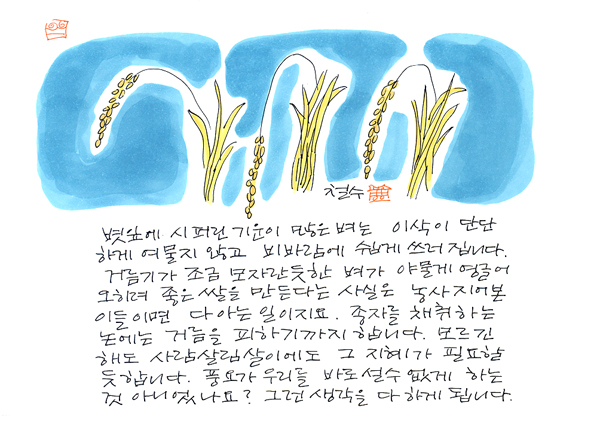 철수
볏잎에 시퍼런 기운이 많은 벼는 이삭이 단단
하게 여물지 않고 비바람에 쉽게 쓰러집니다.
거름기가 조금 모자란듯한 벼가 야물게 영글어
오히려 좋은쌀을 만든다는 사실은 농사지어본
이들이면 다 아는 일이지요. 종자를 채취하는
논에는 거름을 피하기까지 합니다. 모르긴
해도 사람살림살이에도 그 지혜가 필요할
듯합니다. 풍요가 우리를 바로설수 없게 하는
것 아니었나요? 그런 생각을 다 하게 됩니다.